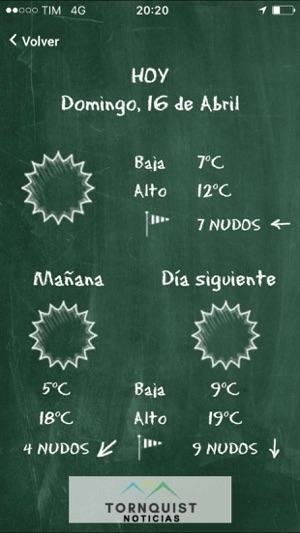 TIM 4G 20:20
Volver
HOY
Domingo, 16 de Abril
Baja 7°C
Alto 12°C
7 NUDOS
Mañana Día siguiente
5°C Baja 9°C
18°C Alto 19°C
4 NUDOS 9 NUDOS
TORNQUIST
NOTICIAS